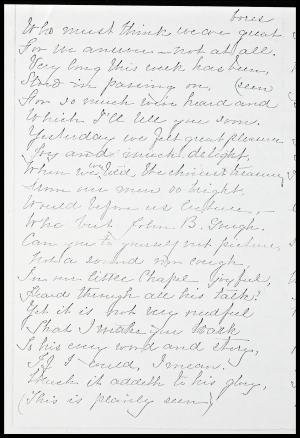 bores
Who must think we are great
For we answer - not at all.
Very long this week has been,
Slow in passing on, (seen
For so much we've heard and
Which I'll tell you soon.
Yesterday we felt great pleasure
Joy and much delight,
When we had the choicest treasure
From our men so bright.
Would before us lecture, -
Who but John B. Gough.
Can you to yourself not picture,
Not a sound or cough,
In our little Chapel joyful,
Heard through all his talk?
Yet it is not very needful
That I make you
Is his every word and story,
If I could, I mean.
Much it addeth to his glory,
(This is plainly seen)